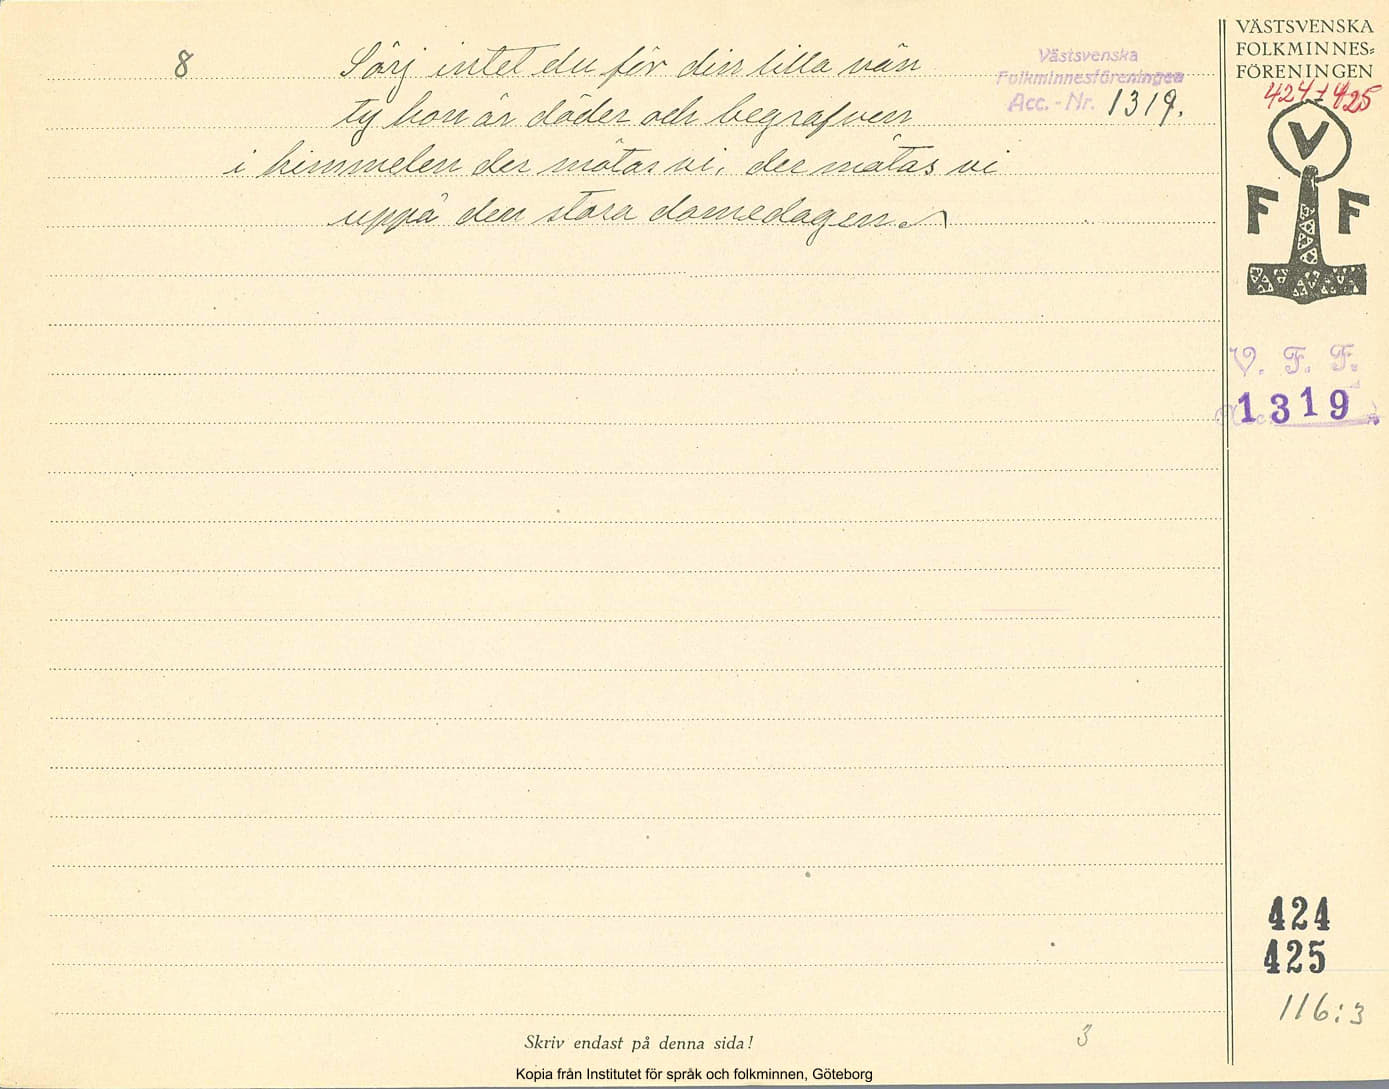 8 Sörj intet du för din lilla vän
ty hon är döder och begrafven
i himmelen der mötas vi, der mötas vi
uppå den stora domedagen.
Västsvenska
Folkminnesföreningen
Acc.-Nr. 1319.
VÄSTSVENSKA
FOLKMINNES-
FÖRENINGEN
424+425
V
F F
V. F. F.
1319
424
425
116:3
3
Skriv endast på denna sida!
Kopia från Institutet för språk och folkminnen, Göteborg